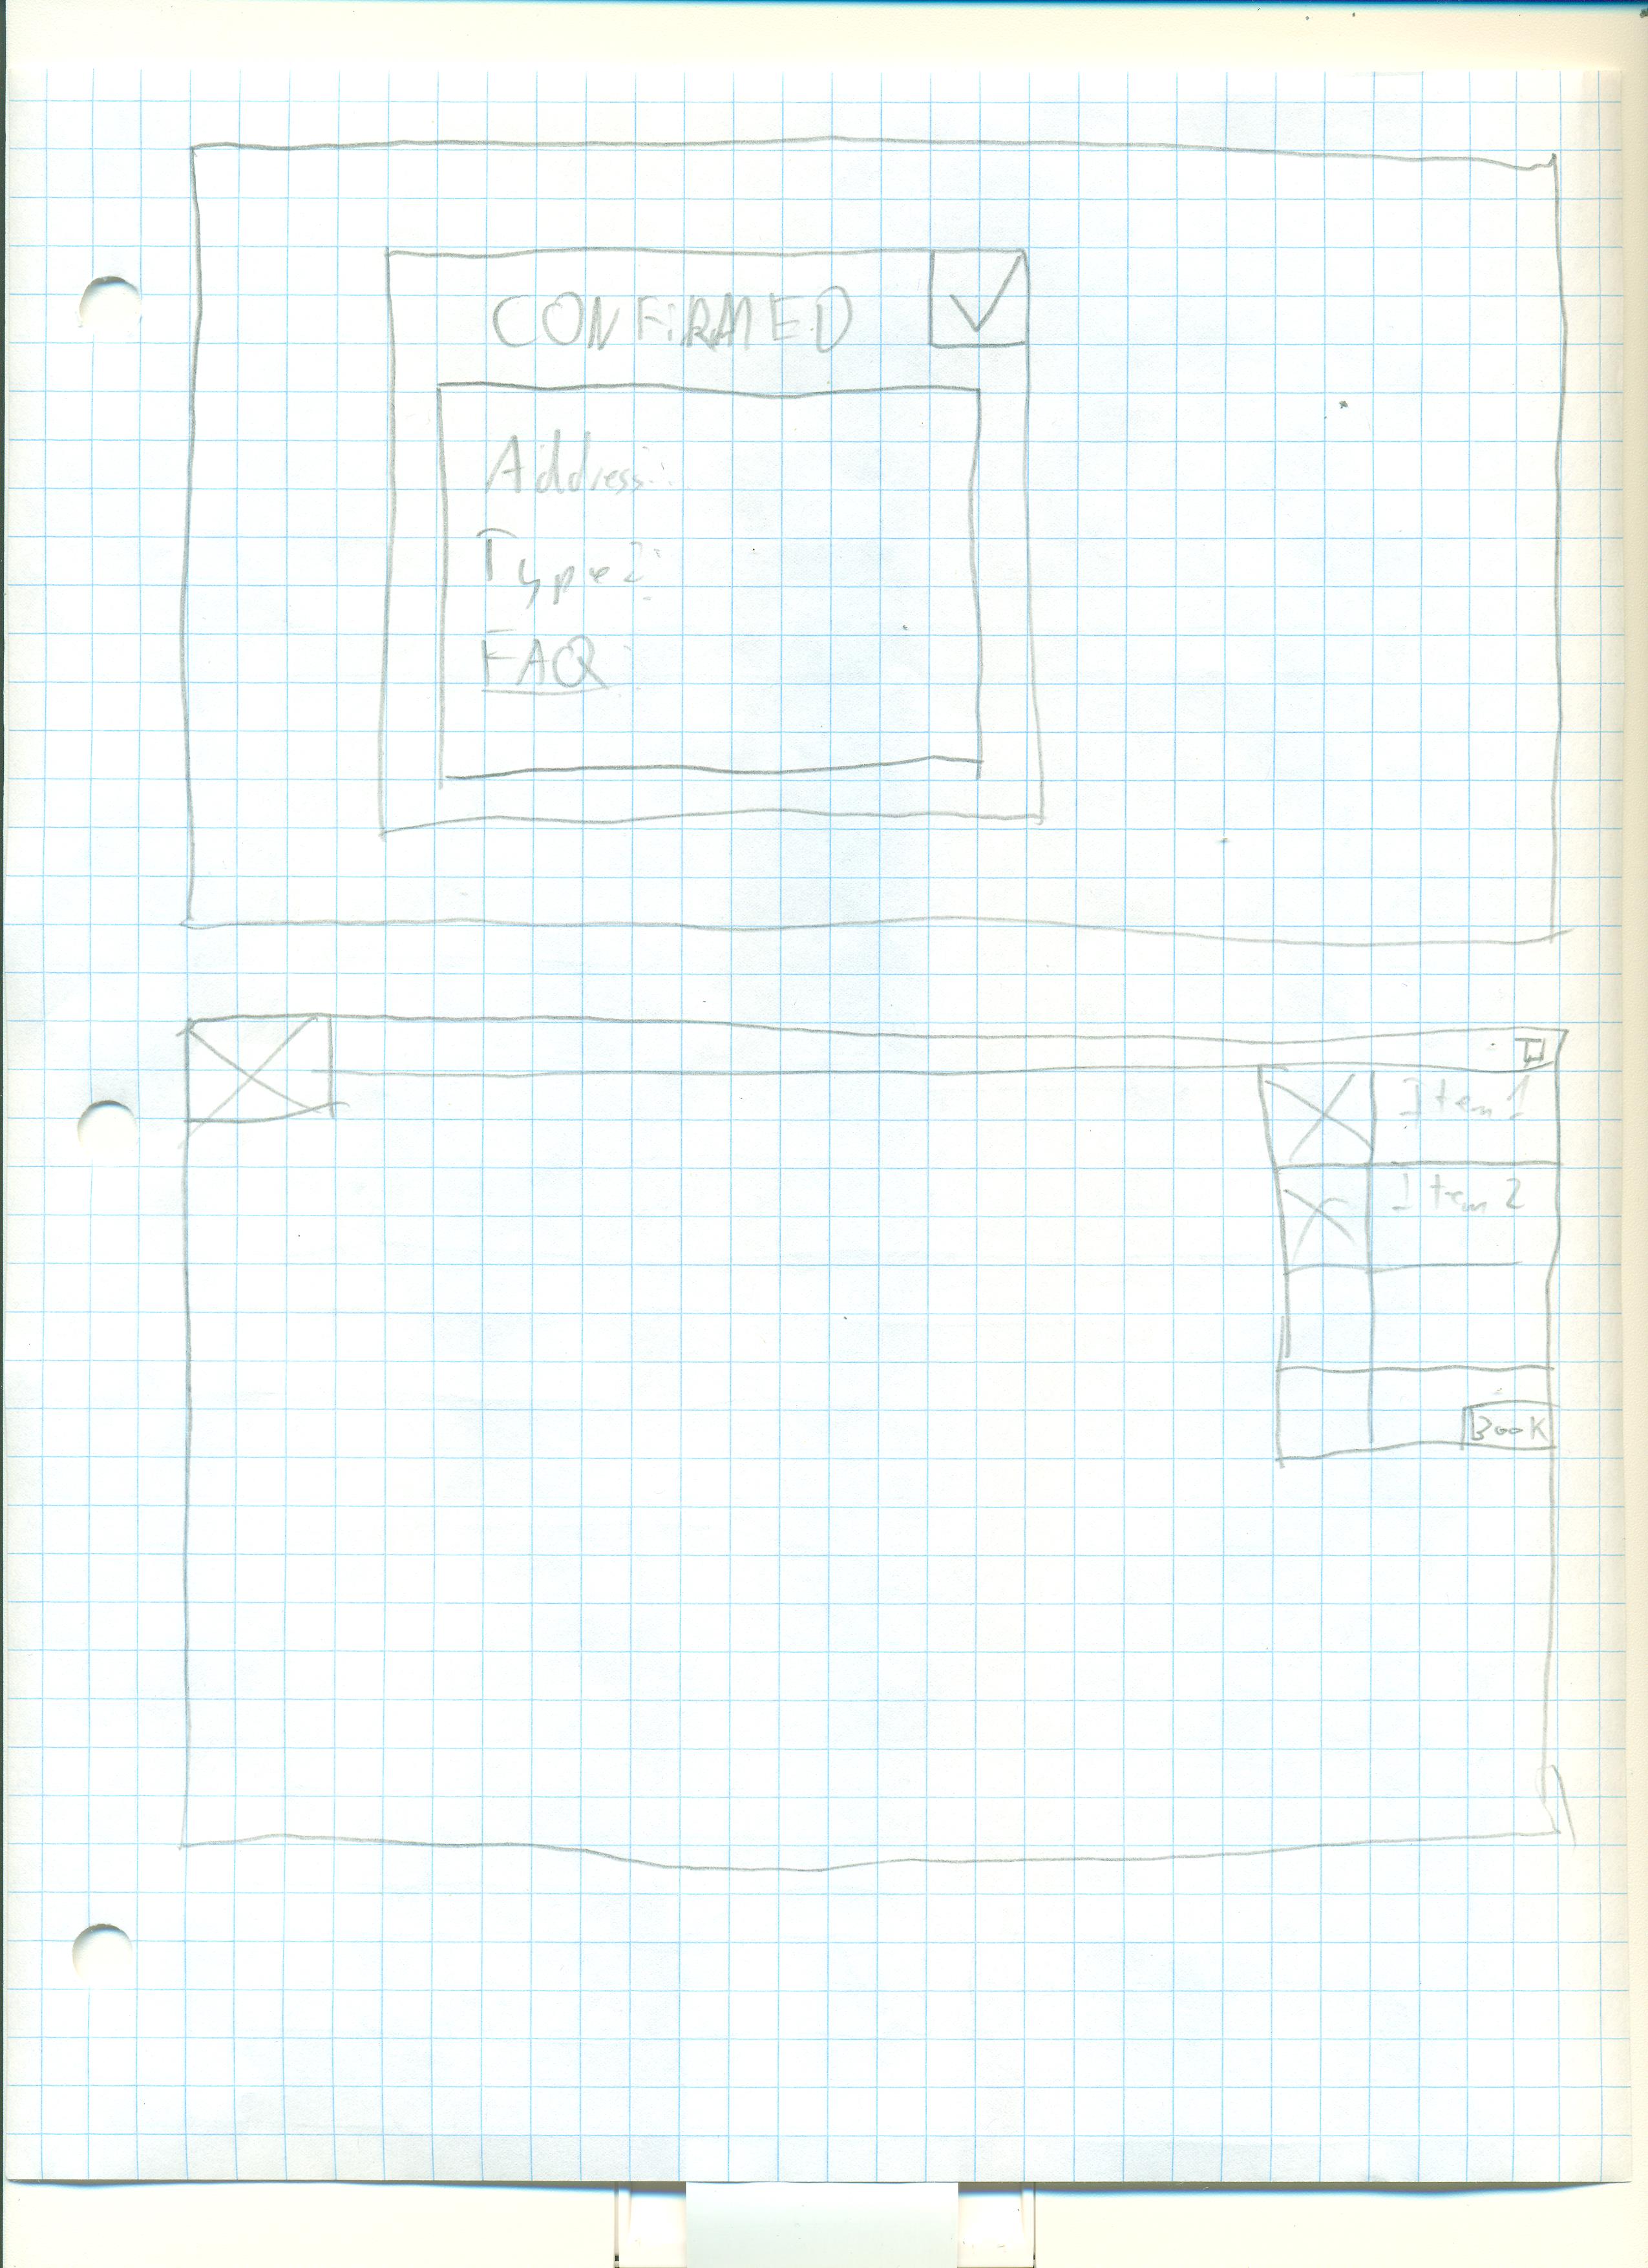 CONFiRMED
Address:
Type:
FAQ:
Item 1
Item 2
BooK